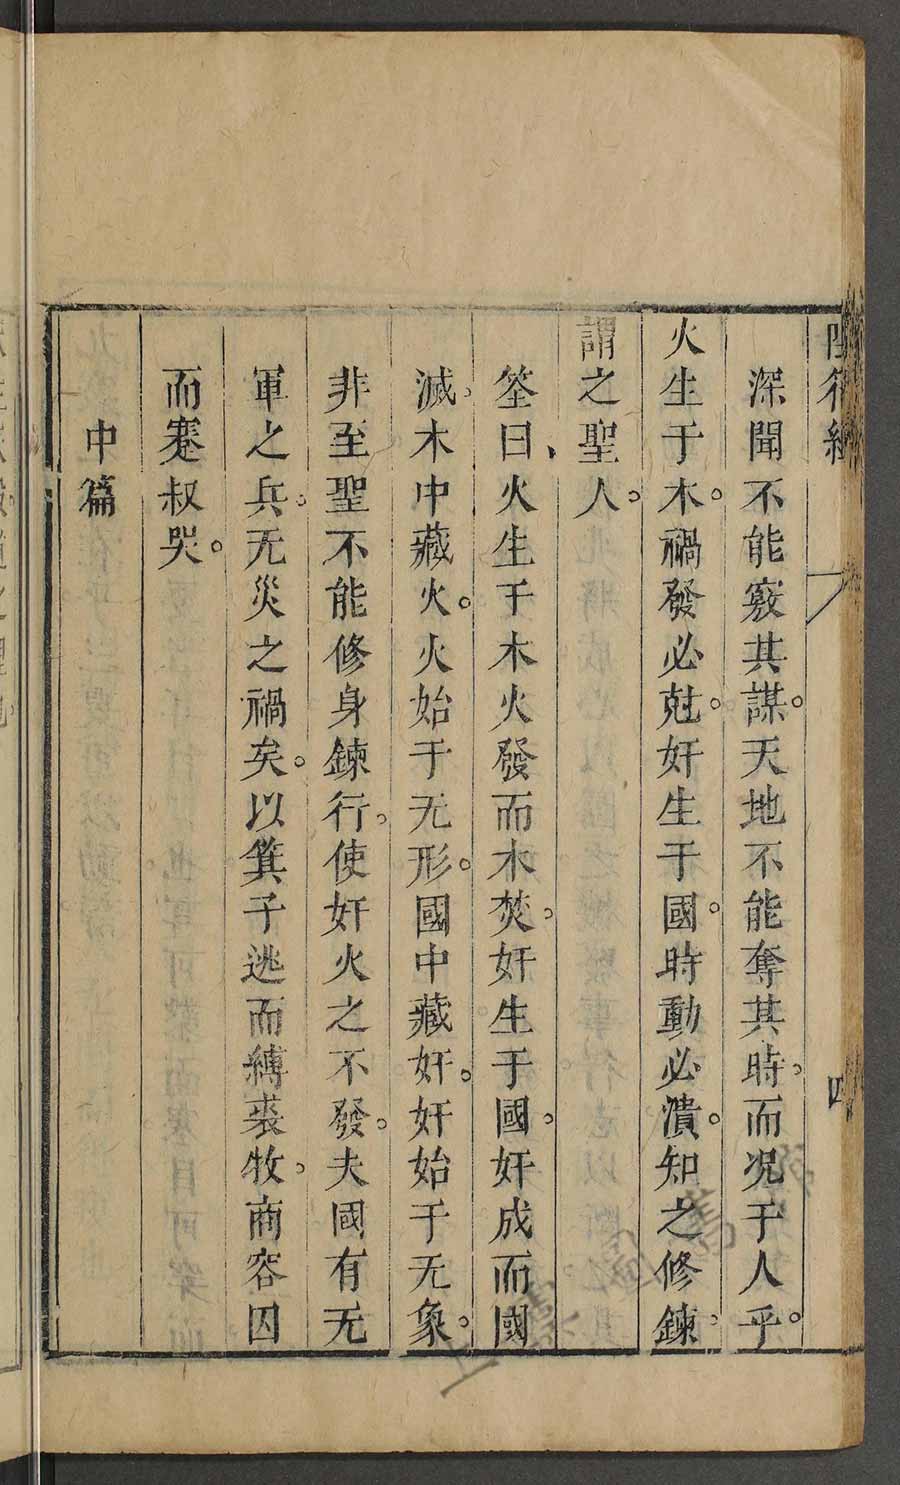 陰符經 四
深聞不能窺其謀。天地不能奪其時。而况于人乎。
火生于木。禍發必尅。奸生于國。時動必潰。知之修鍊。
謂之聖人。
筌曰、火生于木火發而木焚。奸生于國。奸成而國
滅。木中藏火。火始于无形。國中藏奸。奸始于无象。
非至聖不能修身鍊行。使奸火之不發。夫國有无
軍之兵。无災之禍矣。以箕子逃而縛裘牧。商容囚
而蹇叔哭。
中篇